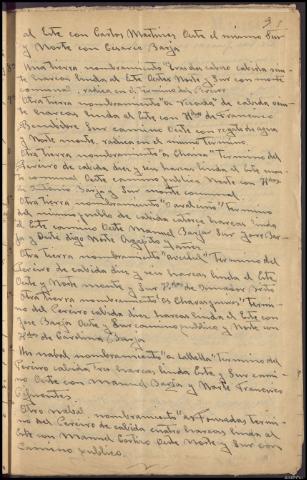 3
al Este con Carlos Martinez Oeste el mismo Sur
y Norte con Cesareo Barja
Una tierra nombramiento "Eras da cabida
te hareas linda al Este Oeste Norte y Sur con monte
comunal, radica en el Termino del Pereiro
Otra tierra nombramiento "a Veiada" de cabida
te hareas linda al Este con Hdos de Francisco
Sur camino Oeste con regato de agua
y Norte monte, radica en el mismo Termino.
Otra tierra nombramiento "a Chaira" Termino del
Pereiro de cabida diez y seis hareas linda al Este
camino Oeste camino publico Norte con Hdos
de Antonio Barja y Sur monte comunal.
Otra tierra nombramiento "Termino
del mismo pueblo de cabida catorce hareas linda
al Este camino Oeste Manuel Barja Sur Jose Bar-
ja y Oeste digo Norte Yañez
Otra tierra nombramiento "Termino del
Pereiro de cabida diez y seis hareas linda al Este
Oeste y Norte monte y Sur Hdos de
Otra tierra nombramiento "Termi-
no del Pereiro cabida diez hareas linda al Este con
Jose Barja Oeste y Sur camino publico y Norte con
Hdos de Carolina Barja
Un nabal nombramiento "a Termino del
Pereiro cabida tres hareas linda Este y Sur cami-
no Oeste con Manuel Barja y Norte Francisco
Cifuentes.
Otro nabal nombramiento "as Termi-
no del Pereiro de cabida cuatro hareas linda al
Este con Manuel Oeste Norte y Sur con
camino publico.